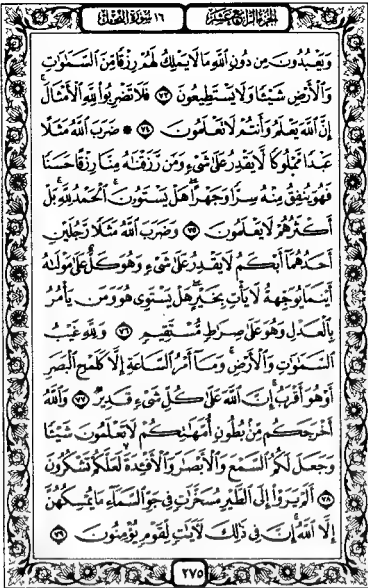 الجزء الرابع عشر ١٦ سورة النحل
وَيَعْبُدُونَ مِن دُونِ ٱللَّهِ مَا لَا يَمْلِكُ لَهُمْ رِزْقًا مِّنَ ٱلسَّمَٰوَٰتِ
وَٱلْأَرْضِ شَيْـًٔا وَلَا يَسْتَطِيعُونَ ٧٣ فَلَا تَضْرِبُوا۟ لِلَّهِ ٱلْأَمْثَالَ
إِنَّ ٱللَّهَ يَعْلَمُ وَأَنتُمْ لَا تَعْلَمُونَ ٧٤ ۞ ضَرَبَ ٱللَّهُ مَثَلًا
عَبْدًا مَّمْلُوكًا لَّا يَقْدِرُ عَلَىٰ شَىْءٍ وَمَن رَّزَقْنَٰهُ مِنَّا رِزْقًا حَسَنًا
فَهُوَ يُنفِقُ مِنْهُ سِرًّا وَجَهْرًا هَلْ يَسْتَوُۥنَ ٱلْحَمْدُ لِلَّهِ بَلْ
أَكْثَرُهُمْ لَا يَعْلَمُونَ ٧٥ وَضَرَبَ ٱللَّهُ مَثَلًا رَّجُلَيْنِ
أَحَدُهُمَآ أَبْكَمُ لَا يَقْدِرُ عَلَىٰ شَىْءٍ وَهُوَ كَلٌّ عَلَىٰ مَوْلَىٰهُ
أَيْنَمَا يُوَجِّههُّ لَا يَأْتِ بِخَيْرٍ هَلْ يَسْتَوِى هُوَ وَمَن يَأْمُرُ
بِٱلْعَدْلِ وَهُوَ عَلَىٰ صِرَٰطٍ مُّسْتَقِيمٍ ٧٦ وَلِلَّهِ غَيْبُ
ٱلسَّمَٰوَٰتِ وَٱلْأَرْضِ وَمَآ أَمْرُ ٱلسَّاعَةِ إِلَّا كَلَمْحِ ٱلْبَصَرِ
أَوْ هُوَ أَقْرَبُ إِنَّ ٱللَّهَ عَلَىٰ كُلِّ شَىْءٍ قَدِيرٌ ٧٧ وَٱللَّهُ
أَخْرَجَكُم مِّنۢ بُطُونِ أُمَّهَٰتِكُمْ لَا تَعْلَمُونَ شَيْـًٔا
وَجَعَلَ لَكُمُ ٱلسَّمْعَ وَٱلْأَبْصَٰرَ وَٱلْأَفْـِٔدَةَ لَعَلَّكُمْ تَشْكُرُونَ
٧٨ أَلَمْ يَرَوْا۟ إِلَى ٱلطَّيْرِ مُسَخَّرَٰتٍ فِى جَوِّ ٱلسَّمَآءِ مَا يُمْسِكُهُنَّ
إِلَّا ٱللَّهُ إِنَّ فِى ذَٰلِكَ لَءَايَٰتٍ لِّقَوْمٍ يُؤْمِنُونَ ٧٩
٢٧٥